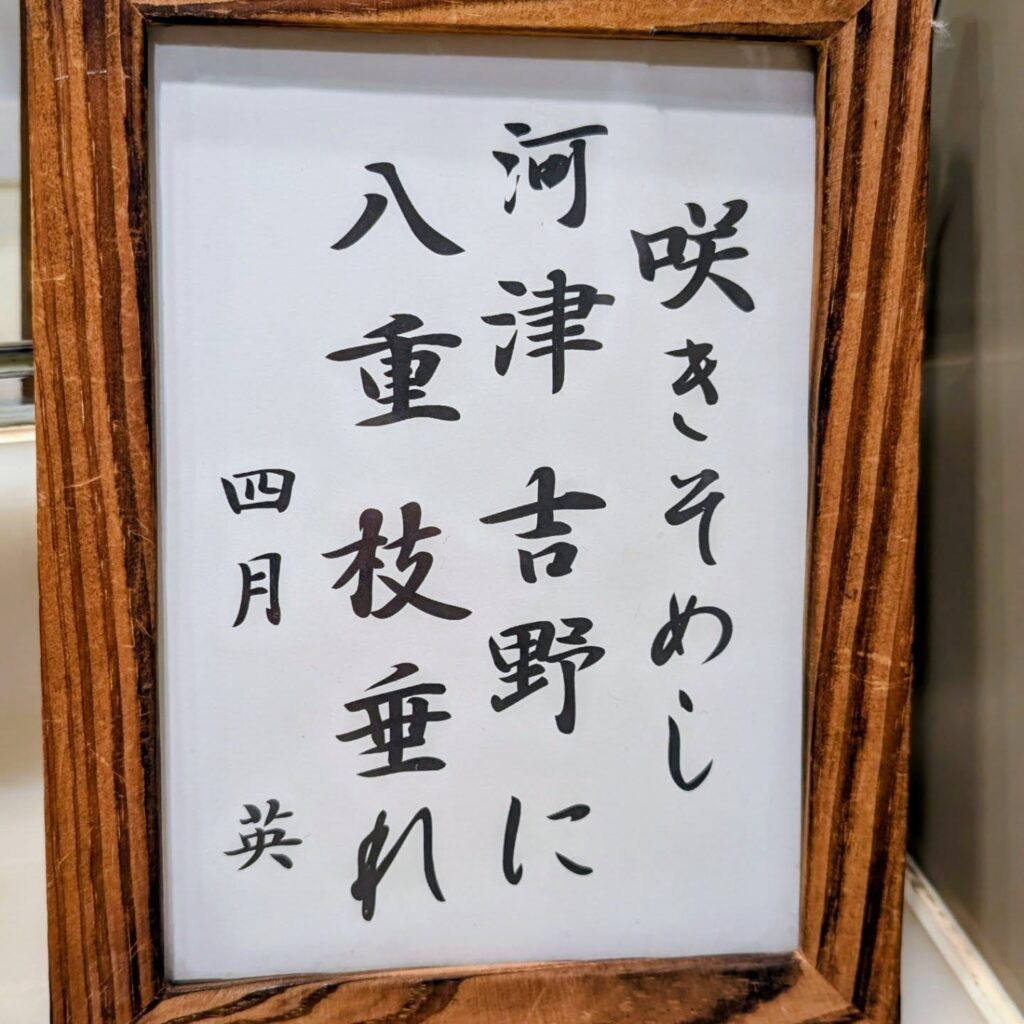 咲きそめし
河津吉野に
八重枝垂れ
四月 英